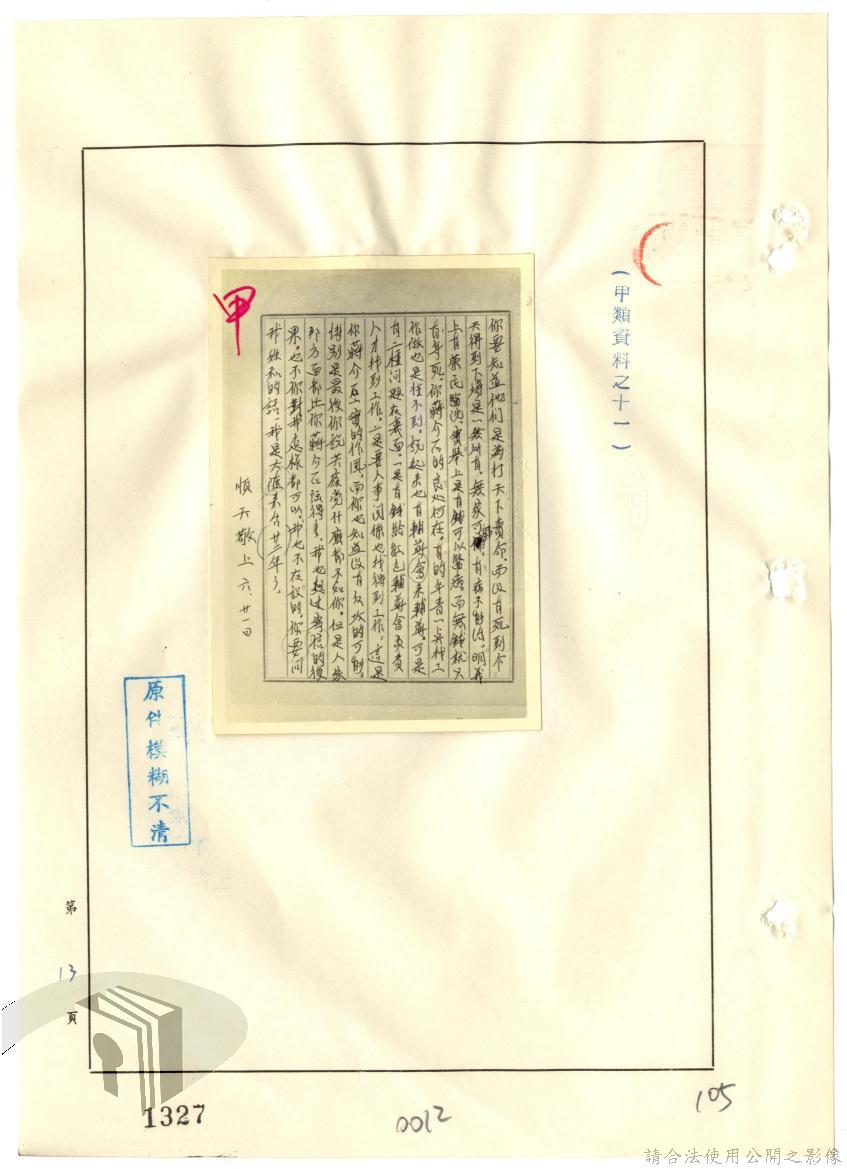 （甲類資料之十一）
甲
你要知道他們是為打天下賣命而沒有死到今
天得到下場是一無所有，無家可歸，有病不能治。明義
上有榮民醫院，實舉上是有錢可以醫病，而無錢就只
有等死。你蔣介石的良心何在。有的年青一点找工
作做也是找不到。說起來也有輔導會來輔導。可是
有二種問題在裏面。一是有錢給紅包輔導會負責
人才找到工作。二是要人事関係也找得到工作。這是
你蔣介石一實的作風。而你也知道沒有反攻的可能。
特別是最後你說共産党什麼都不如你。但是人家
那方面都比你蔣介石強得多。我也想过寄信的後
果。也不你對我怎樣都可以。我也不在設的。你要问
我姓和的話，我是大陸來台廿二年了。
順天敬上 六．廿一日
原件模糊不清
第
13
頁
1327
0012
105
請合法使用公開之影像